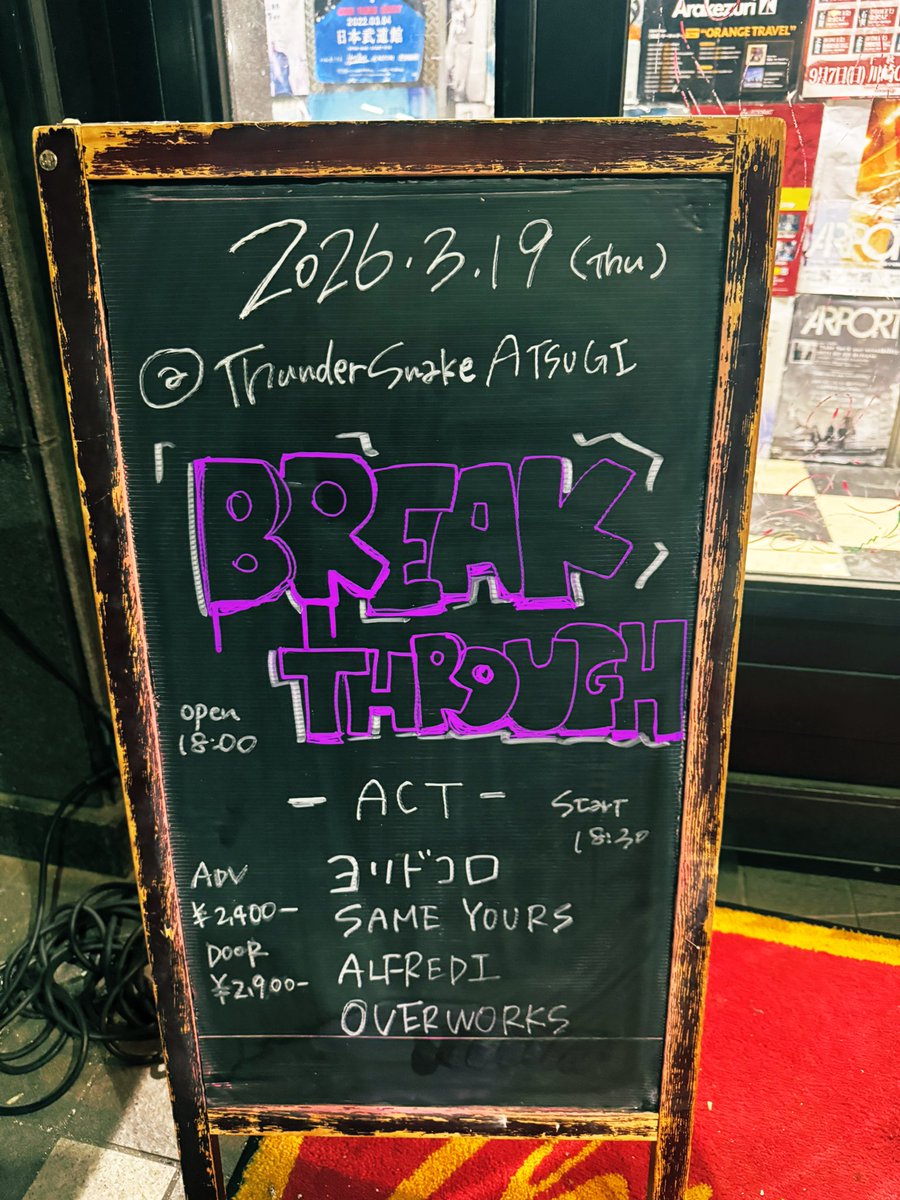 2022.03.04
日本武道館
Arakezuri
"ORANGE TRAVEL"
9月17日(日) 川崎
ARPO
ARPORT
2026.3.19 (Thu)
@ ThunderSnake ATSUGI
「BREAK
THROUGH
open
18:00
- ACT -
Start
18:30
ADV
¥2,400-
DOOR
¥2,900-
ヨリドコロ
SAME YOURS
ALFREDI
OVERWORKS